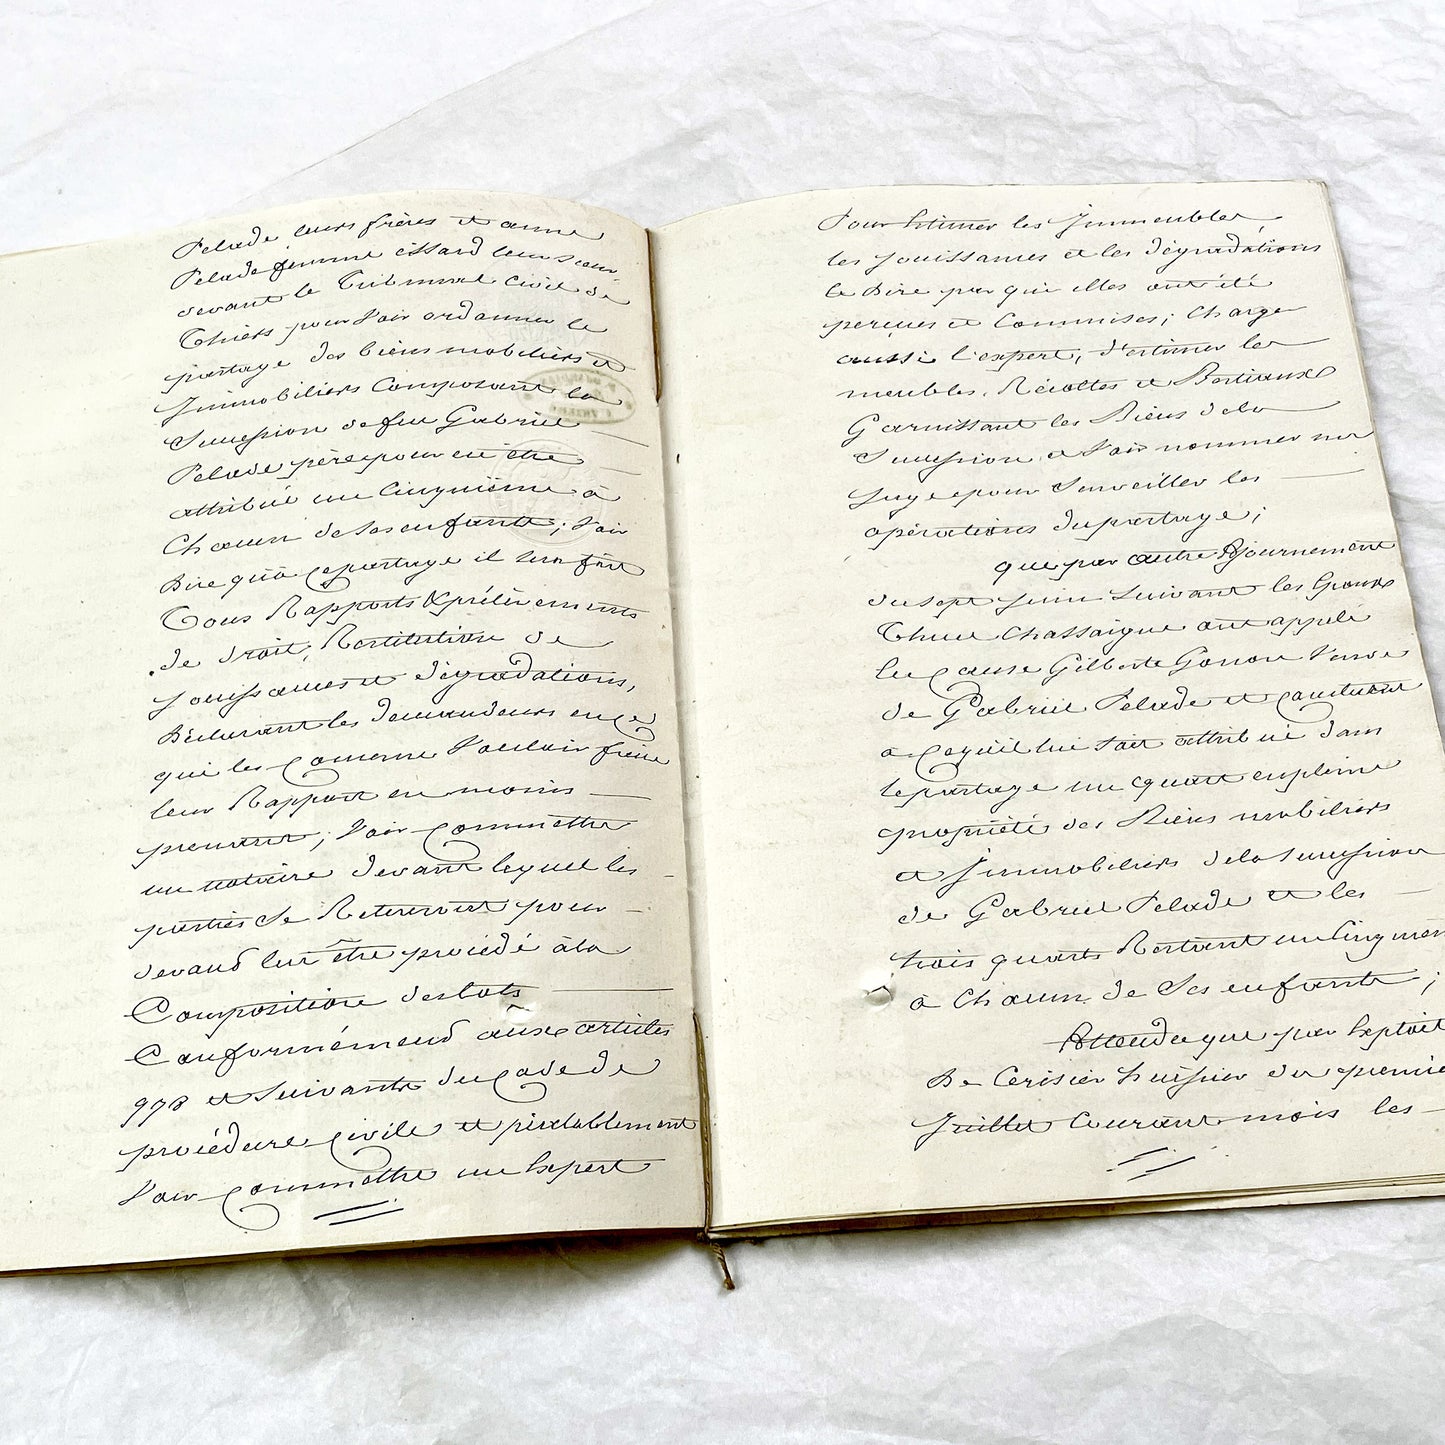 Pelade leurs frères et anne
Pelade femme essard leur sœur
devant le Tribunal Civil de
Thiers pour Voir ordonner le
partage des biens mobiliers et
Immobiliers Composant la
Succession de feu Gabriel
Pelade père pour en être
attribué un Cinquième à
Chacun de ses enfants; Voir
Dire qu'à ce partage il sera fait
Tous Rapports & prélèvements
de droit, Restitution de
jouissances et dégradations,
Déclarant les demandeurs en ce
qui les Concerne Vouloir faire
leur Rapport en moins
prenant; Voir Commettre
un notaire devant lequel les
parties Se Retireront pour
devand lui être procédé à la
Composition des lots
Conformémend aux articles
978 et Suivants du Code de
procédure Civile et préalablement
Voir Commettre un Expert
Pour Estimer les Immeubles
les jouissances et les dégradations
le Dire par qui elles ont été
perçues et Commises; Charger
aussi l'expert, d'estimer les
meubles, Récoltes et Bestiaux
Garnissant les Biens de la
Succession et Voir nommer un
juge pour Surveiller les
opérations du partage;
que par autre Ajournement
du sept juin Suivant les
Chassaigne ont appelé
en Cause Gilberte Gonon Veuve
de Gabriel Pelade et
à ce qu'il lui Soit attribué dans
le partage un quart en pleine
propriété des Biens mobiliers
et Immobiliers de la Succession
de Gabriel Pelade et les
trois quarts Restant un Cinquième
à Chacun de Ses enfants;
Attendu que par Exploit
De Cerisier huissier du premier
Juillet Courant mois les